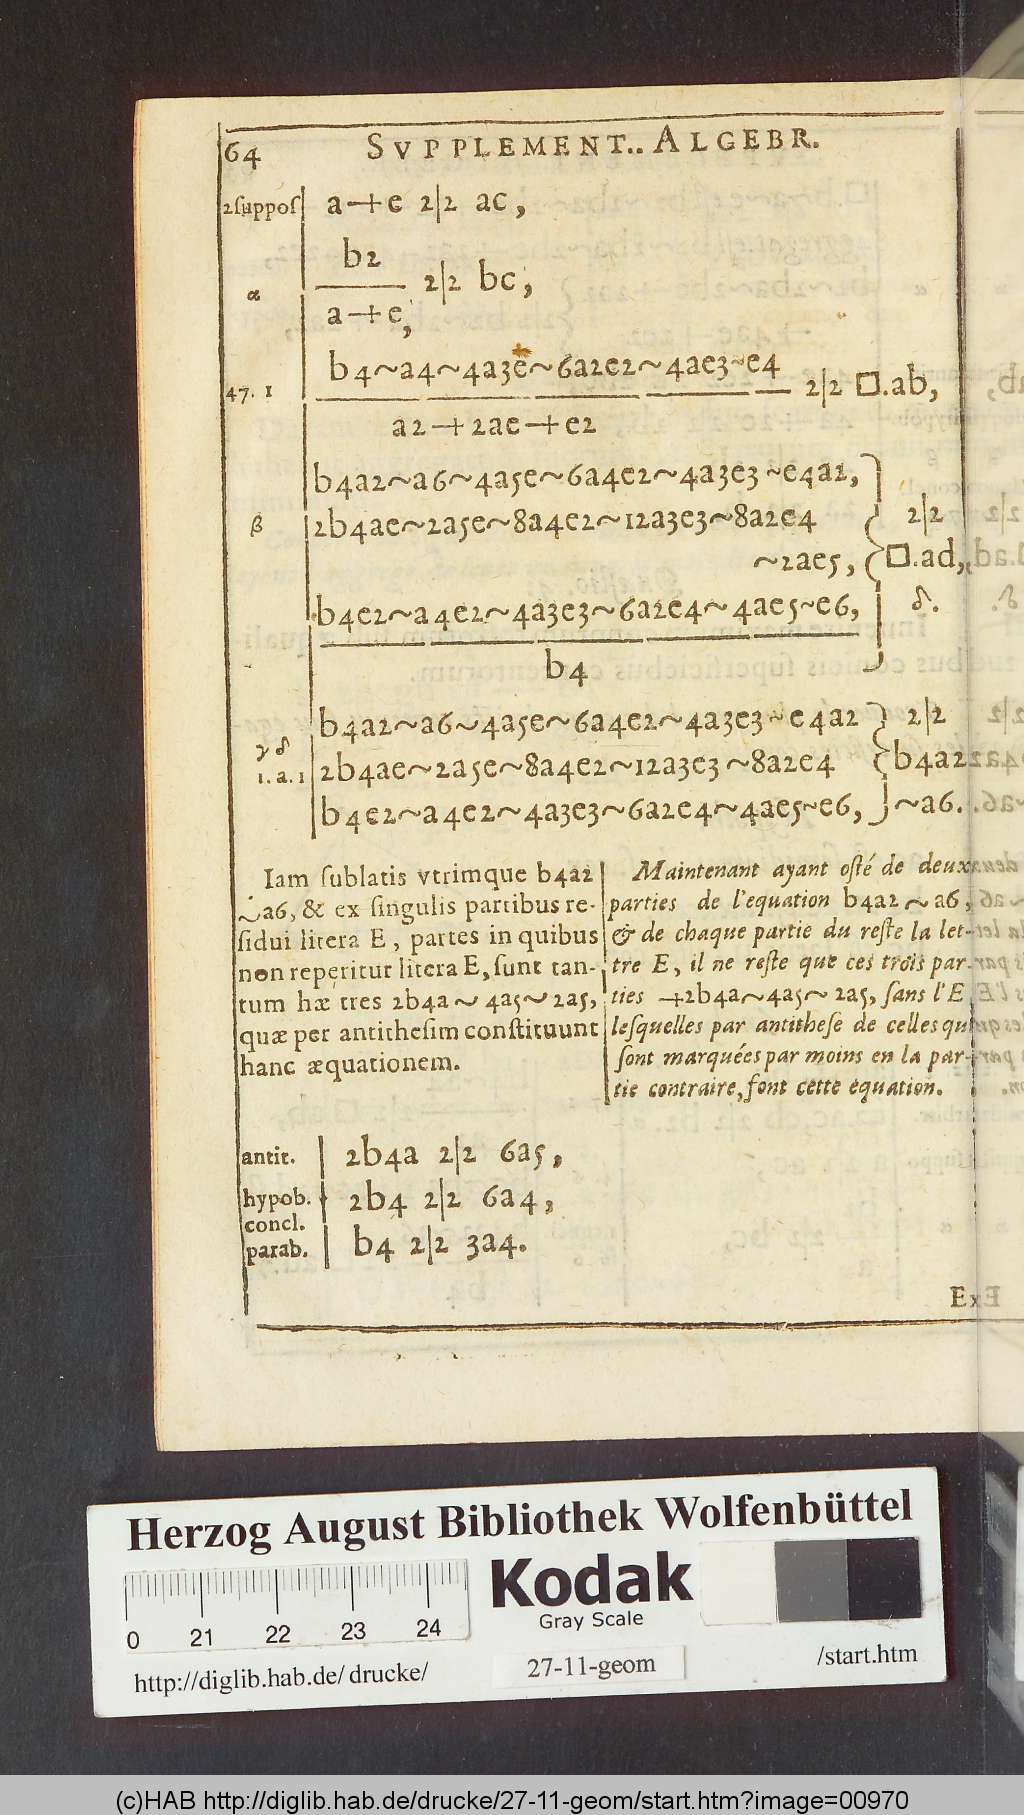 64 SVPPLEMENT.. ALGEBR.
2ſuppoſ a+e 2|2 ac,
α b2
2|2 bc,
a+e,
47. 1 b4~a4~4a3e~6a2e2~4ae3~e4 2|2 □.ab,
a2+2ae+e2
b4a2~a6~4a5e~6a4e2~4a3e3~e4a2,
β 2b4ae~2a5e~8a4e2~12a3e3~8a2e4 2|2
~2ae5, □.ad,
b4e2~a4e2~4a3e3~6a2e4~4ae5~e6, δ.
b4
b4a2~a6~4a5e~6a4e2~4a3e3~e4a2 2|2
γ δ
1.a.1 2b4ae~2a5e~8a4e2~12a3e3~8a2e4 b4a2
b4e2~a4e2~4a3e3~6a2e4~4ae5~e6, ~a6.
Iam ſublatis vtrimque b4a2
~a6, & ex ſingulis partibus re-
ſidui litera E, partes in quibus
non reperitur litera E, ſunt tan-
tum hæ tres 2b4a~4a5~2a5,
quæ per antitheſim conſtituunt
hanc æquationem.
Maintenant ayant oſté de deux
parties de l'equation b4a2~a6,
& de chaque partie du reſte la let-
tre E, il ne reſte que ces trois par-
ties +2b4a~4a5~2a5, ſans l'E
leſquelles par antitheſe de celles qui
ſont marquées par moins en la par-
tie contraire, ſont cette equation.
antit. 2b4a 2|2 6a5,
hypob. 2b4 2|2 6a4,
concl.
parab. b4 2|2 3a4.
Ex
Herzog August Bibliothek Wolfenbüttel
Kodak
Gray Scale
0 21 22 23 24
http://diglib.hab.de/drucke/ 27-11-geom /start.htm
(c)HAB http://diglib.hab.de/drucke/27-11-geom/start.htm?image=00970